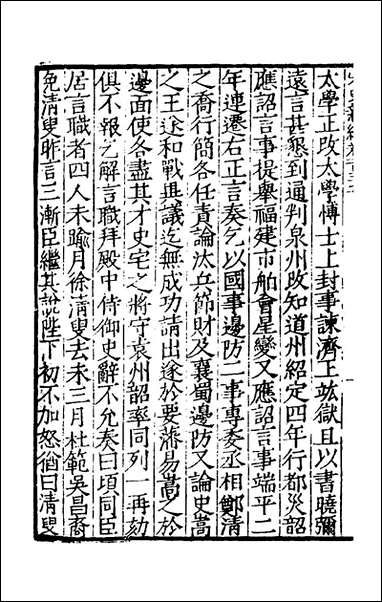 太學正改太學博士上封事諫濟王竑獄且以書曉彌
遠言甚懇到通判泉州改知道州紹定四年行都災詔
應詔言事提舉福建市舶會星變又應詔言事端平二
年連遷右正言奏乞以國事邊防二事專委丞相鄭清
之喬行簡各任責論汰兵節財及襄蜀邊防又論史嵩
之王遂和戰異議迄無成功請出遂於要藩易嵩之於
邊面使各盡其才史宅之將守袁州韶率同列一再劾
俱不報乞解言職拜殿中侍御史辭不允奏曰頃同臣
居言職者四人未踰月徐清叟去未三月杜範吳昌裔
免清叟昨言三漸臣繼其說陛下初不加怒猶曰清叟